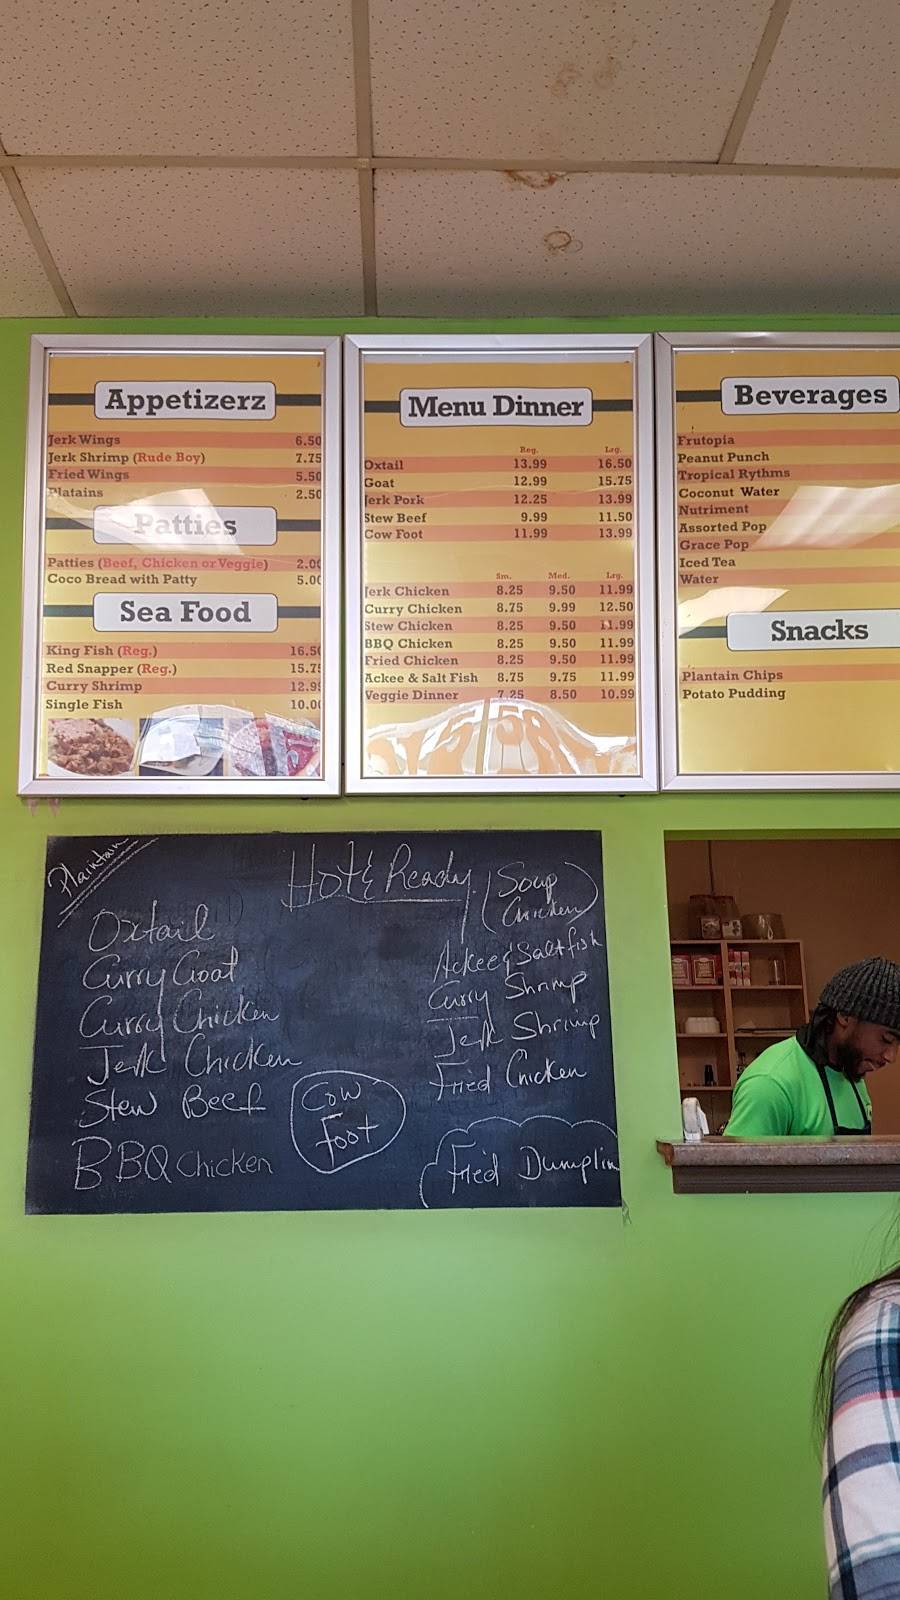 Appetizerz
Jerk Wings 6.50
Jerk Shrimp (Rude Boy) 7.75
Fried Wings 5.50
Platains 2.50
Patties
Patties (Beef, Chicken or Veggie) 2.00
Coco Bread with Patty 5.00
Sea Food
King Fish (Reg.) 16.50
Red Snapper (Reg.) 15.75
Curry Shrimp 12.99
Single Fish 10.00
Menu Dinner
Reg. Lrg.
Oxtail 13.99 16.50
Goat 12.99 15.75
Jerk Pork 12.25 13.99
Stew Beef 9.99 11.50
Cow Foot 11.99 13.99
Sm. Med. Lrg.
Jerk Chicken 8.25 9.50 11.99
Curry Chicken 8.75 9.99 12.50
Stew Chicken 8.25 9.50 11.99
BBQ Chicken 8.25 9.50 11.99
Fried Chicken 8.25 9.50 11.99
Ackee & Salt Fish 8.75 9.75 11.99
Veggie Dinner 7.25 8.50 10.99
Beverages
Frutopia
Peanut Punch
Tropical Rythms
Coconut Water
Nutriment
Assorted Pop
Grace Pop
Iced Tea
Water
Snacks
Plantain Chips
Potato Pudding
Plaintain
Hot & Ready
Oxtail
Curry Goat
Curry Chicken
Jerk Chicken
Stew Beef
BBQ Chicken
Cow
Foot
(Soup
Chicken)
Ackee & Saltfish
Curry Shrimp
Jerk Shrimp
Fried Chicken
Fried Dumplin